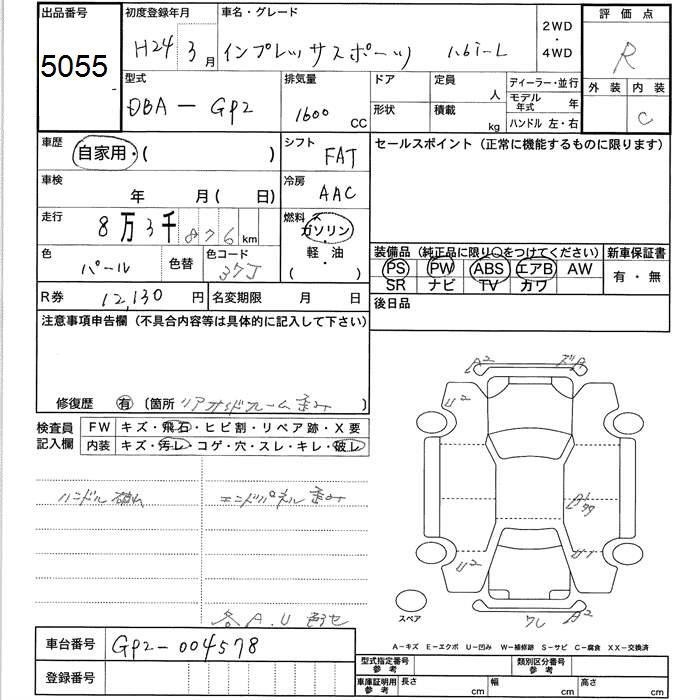 出品番号
5055
初度登録年月
H24 3月
車名・グレード
インプレッサスポーツ 1.6i-L
2WD
・
4WD
評価点
R
外装 内装
C
型式
DBA-GP2
排気量
1600 CC
ドア
形状
定員 人
積載 kg
ディーラー・並行
モデル年式 年
ハンドル 左・右
車歴
自家用・( )
シフト
FAT
セールスポイント(正常に機能するものに限ります)
車検
年 月( 日)
冷房
AAC
走行
8万3千876km
燃料
ガソリン・
軽・油
( ・ )
色
パール
色替
色コード
37J
装備品(純正品に限り○をつけてください)
PS PW ABS エアB AW
SR ナビ TV カワ
新車保証書
有・無
R券 12,130円
名変期限 月 日
後日品
注意事項申告欄(不具合内容等は具体的に記入して下さい)
修復歴 有 〔箇所 リアサイドフレーム歪み 〕
検査員
記入欄
FW キズ・飛石・ヒビ割・リペア跡・X要
内装 キズ・汚レ・コゲ・穴・スレ・キレ・破レ
ハンドル破れ
エンドパネル歪み
各A.U 色セ
A2
U2
U2
U1
ワレ
スペア
A-キズ E-エクボ U-凹み W-補修跡 S-サビ C-腐食 XX-交換済
車台番号 GP2-004578
登録番号
型式指定番号
参考
類別区分番号
参考
車庫証明用
参考
長さ cm
幅 cm
高さ cm